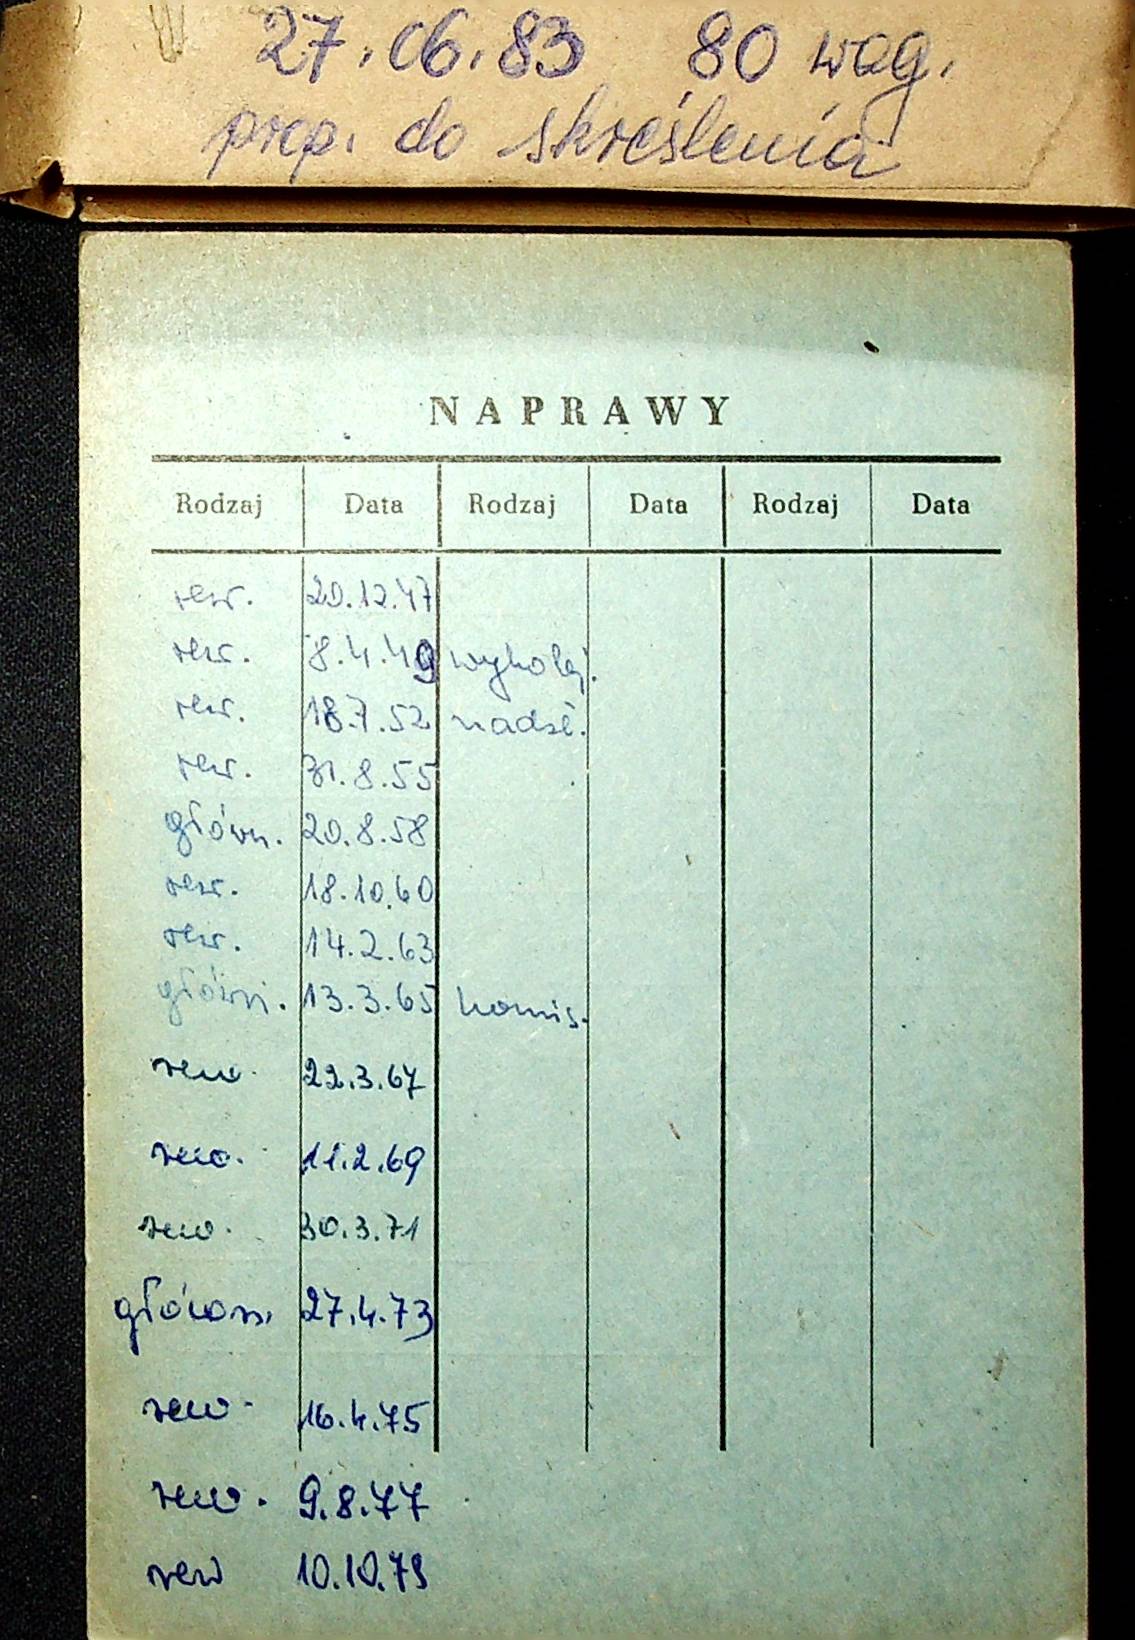 27.06.83 80 wag.
prop. do skreślenia
NAPRAWY
Rodzaj Data Rodzaj Data Rodzaj Data
rew. 20.12.47
rew. 8.4.49 wykolej.
rew. 18.7.52 nadzw.
rew. 31.8.55
główn. 20.8.58
rew. 18.10.60
rew. 14.2.63
główn. 13.3.65 komis.
rew. 22.3.67
rew. 11.2.69
rew. 30.3.71
główn. 27.4.73
rew. 16.4.75
rew. 9.8.77
rew 10.10.79